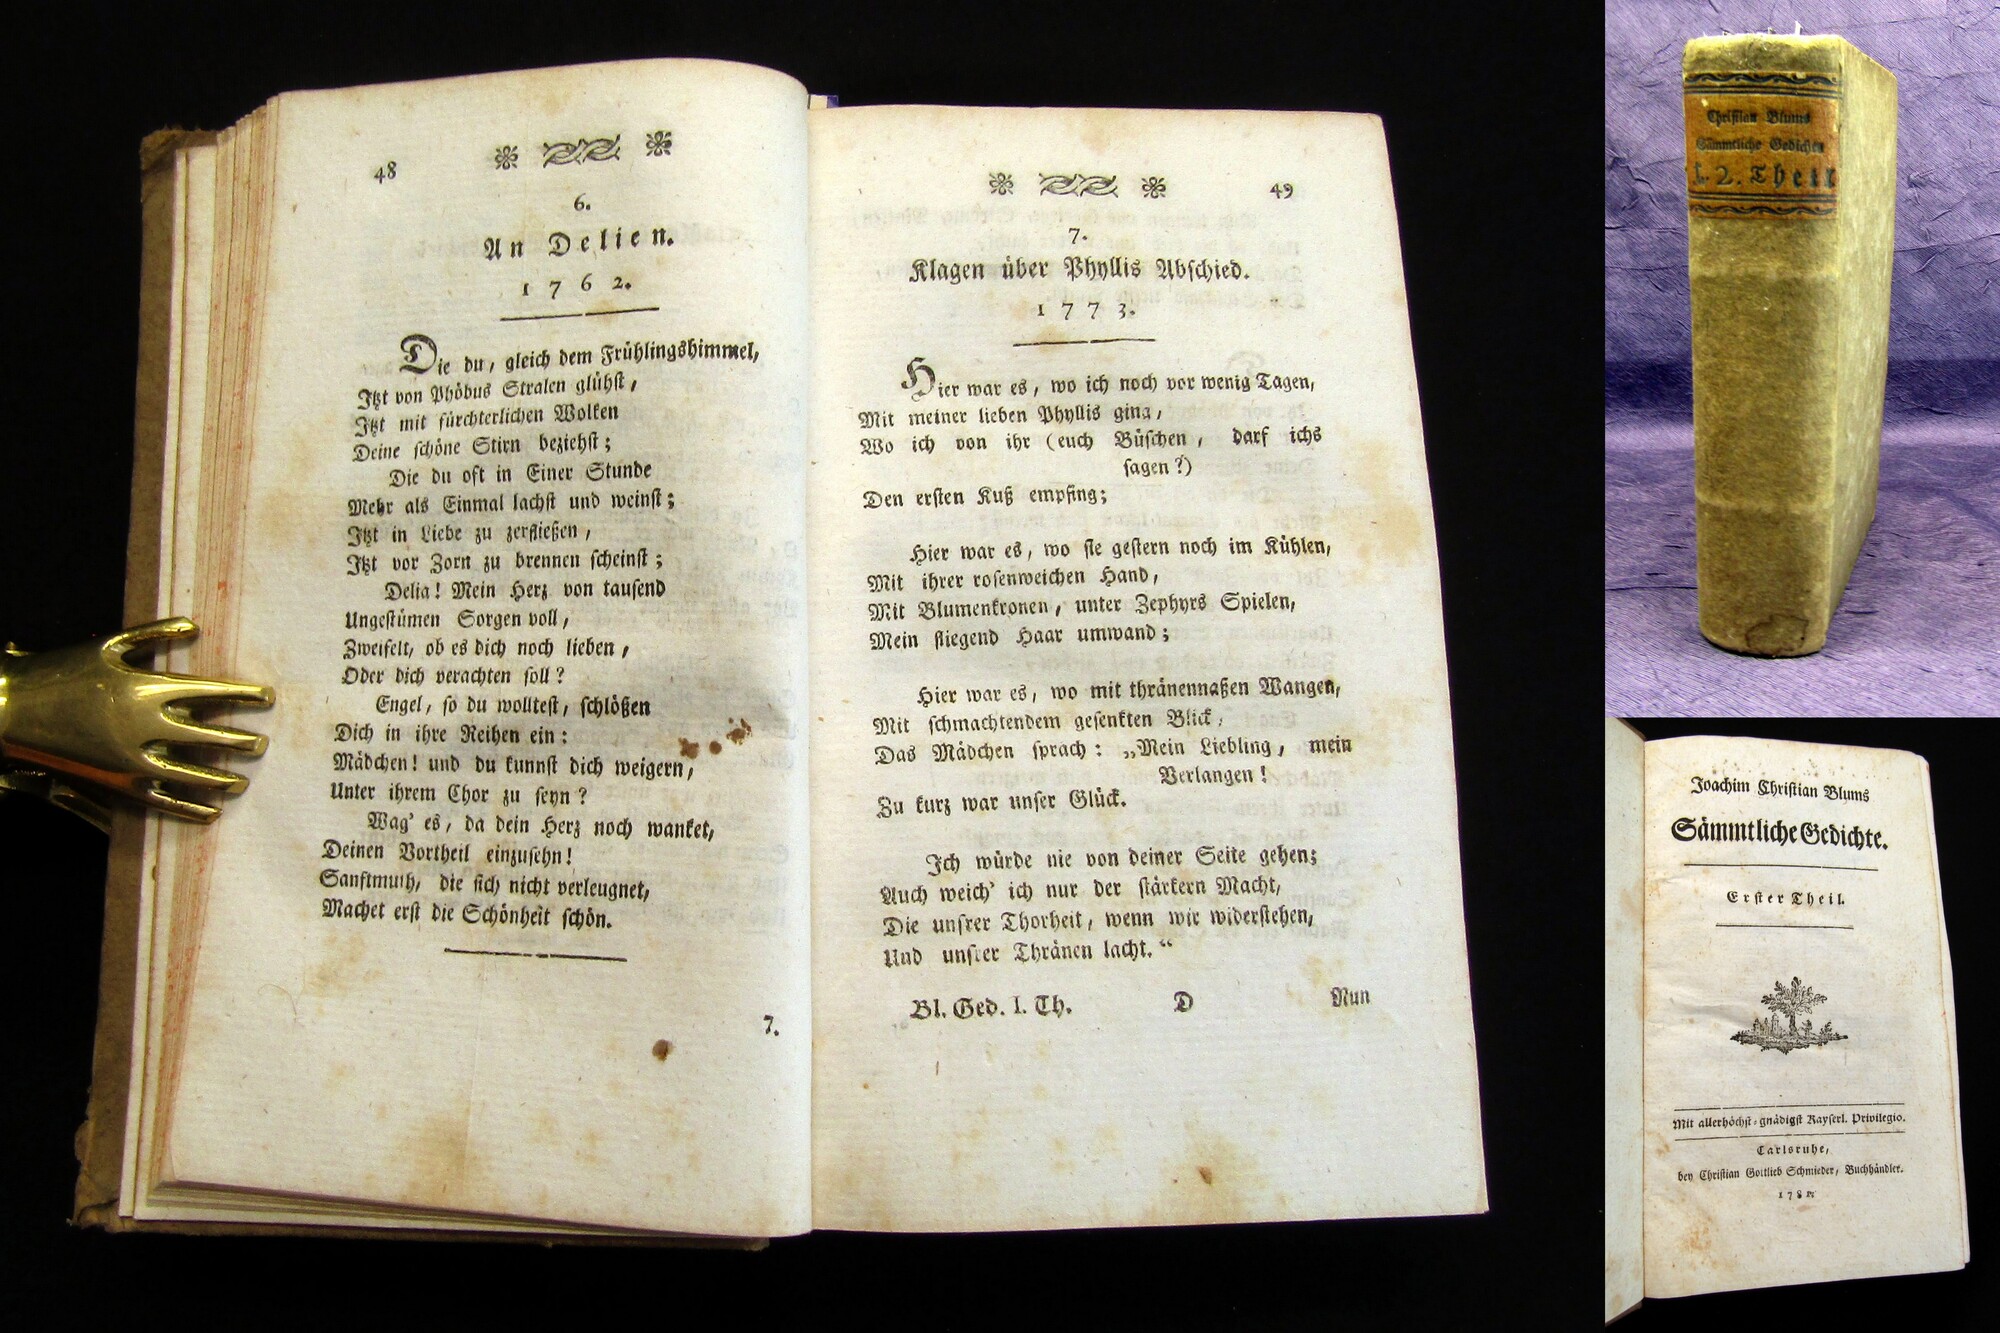 48
6.
An Delien.
1762.
Die du, gleich dem Frühlingshimmel,
Itzt von Phöbus Stralen glühst,
Itzt mit fürchterlichen Wolken
Deine schöne Stirn beziehst;
Die du oft in Einer Stunde
Mehr als Einmal lachst und weinst;
Itzt in Liebe zu zerfließen,
Itzt vor Zorn zu brennen scheinst;
Delia! Mein Herz von tausend
Ungestümen Sorgen voll,
Zweifelt, ob es dich noch lieben,
Oder dich verachten soll?
Engel, so du wolltest, schlößen
Dich in ihre Reihen ein:
Mädchen! und du kunnst dich weigern,
Unter ihrem Chor zu seyn?
Wag' es, da dein Herz noch wanket,
Deinen Vortheil einzusehn!
Sanftmuth, die sich nicht verleugnet,
Machet erst die Schönheit schön.
7.
49
7.
Klagen über Phyllis Abschied.
1773.
Hier war es, wo ich noch vor wenig Tagen,
Mit meiner lieben Phyllis ging,
Wo ich von ihr (euch Büschen, darf ichs
sagen?)
Den ersten Kuß empfing;
Hier war es, wo sie gestern noch im Kühlen,
Mit ihrer rosenweichen Hand,
Mit Blumenkronen, unter Zephyrs Spielen,
Mein fliegend Haar umwand;
Hier war es, wo mit thränennaßen Wangen,
Mit schmachtendem gesenkten Blick,
Das Mädchen sprach: „Mein Liebling, mein
Verlangen!
Zu kurz war unser Glück.
Ich würde nie von deiner Seite gehen;
Auch weich' ich nur der stärkern Macht,
Die unsrer Thorheit, wenn wir widerstehen,
Und unsrer Thränen lacht.“
Bl. Ged. I. Th. D Nun
Christian Blums
Sämmtliche Gedichte
1. 2. Theil
Joachim Christian Blums
Sämmtliche Gedichte.
Erster Theil.
Mit allerhöchst-gnädigst Kayserl. Privilegio.
Carlsruhe,
bey Christian Gottlieb Schmieder, Buchhändler.